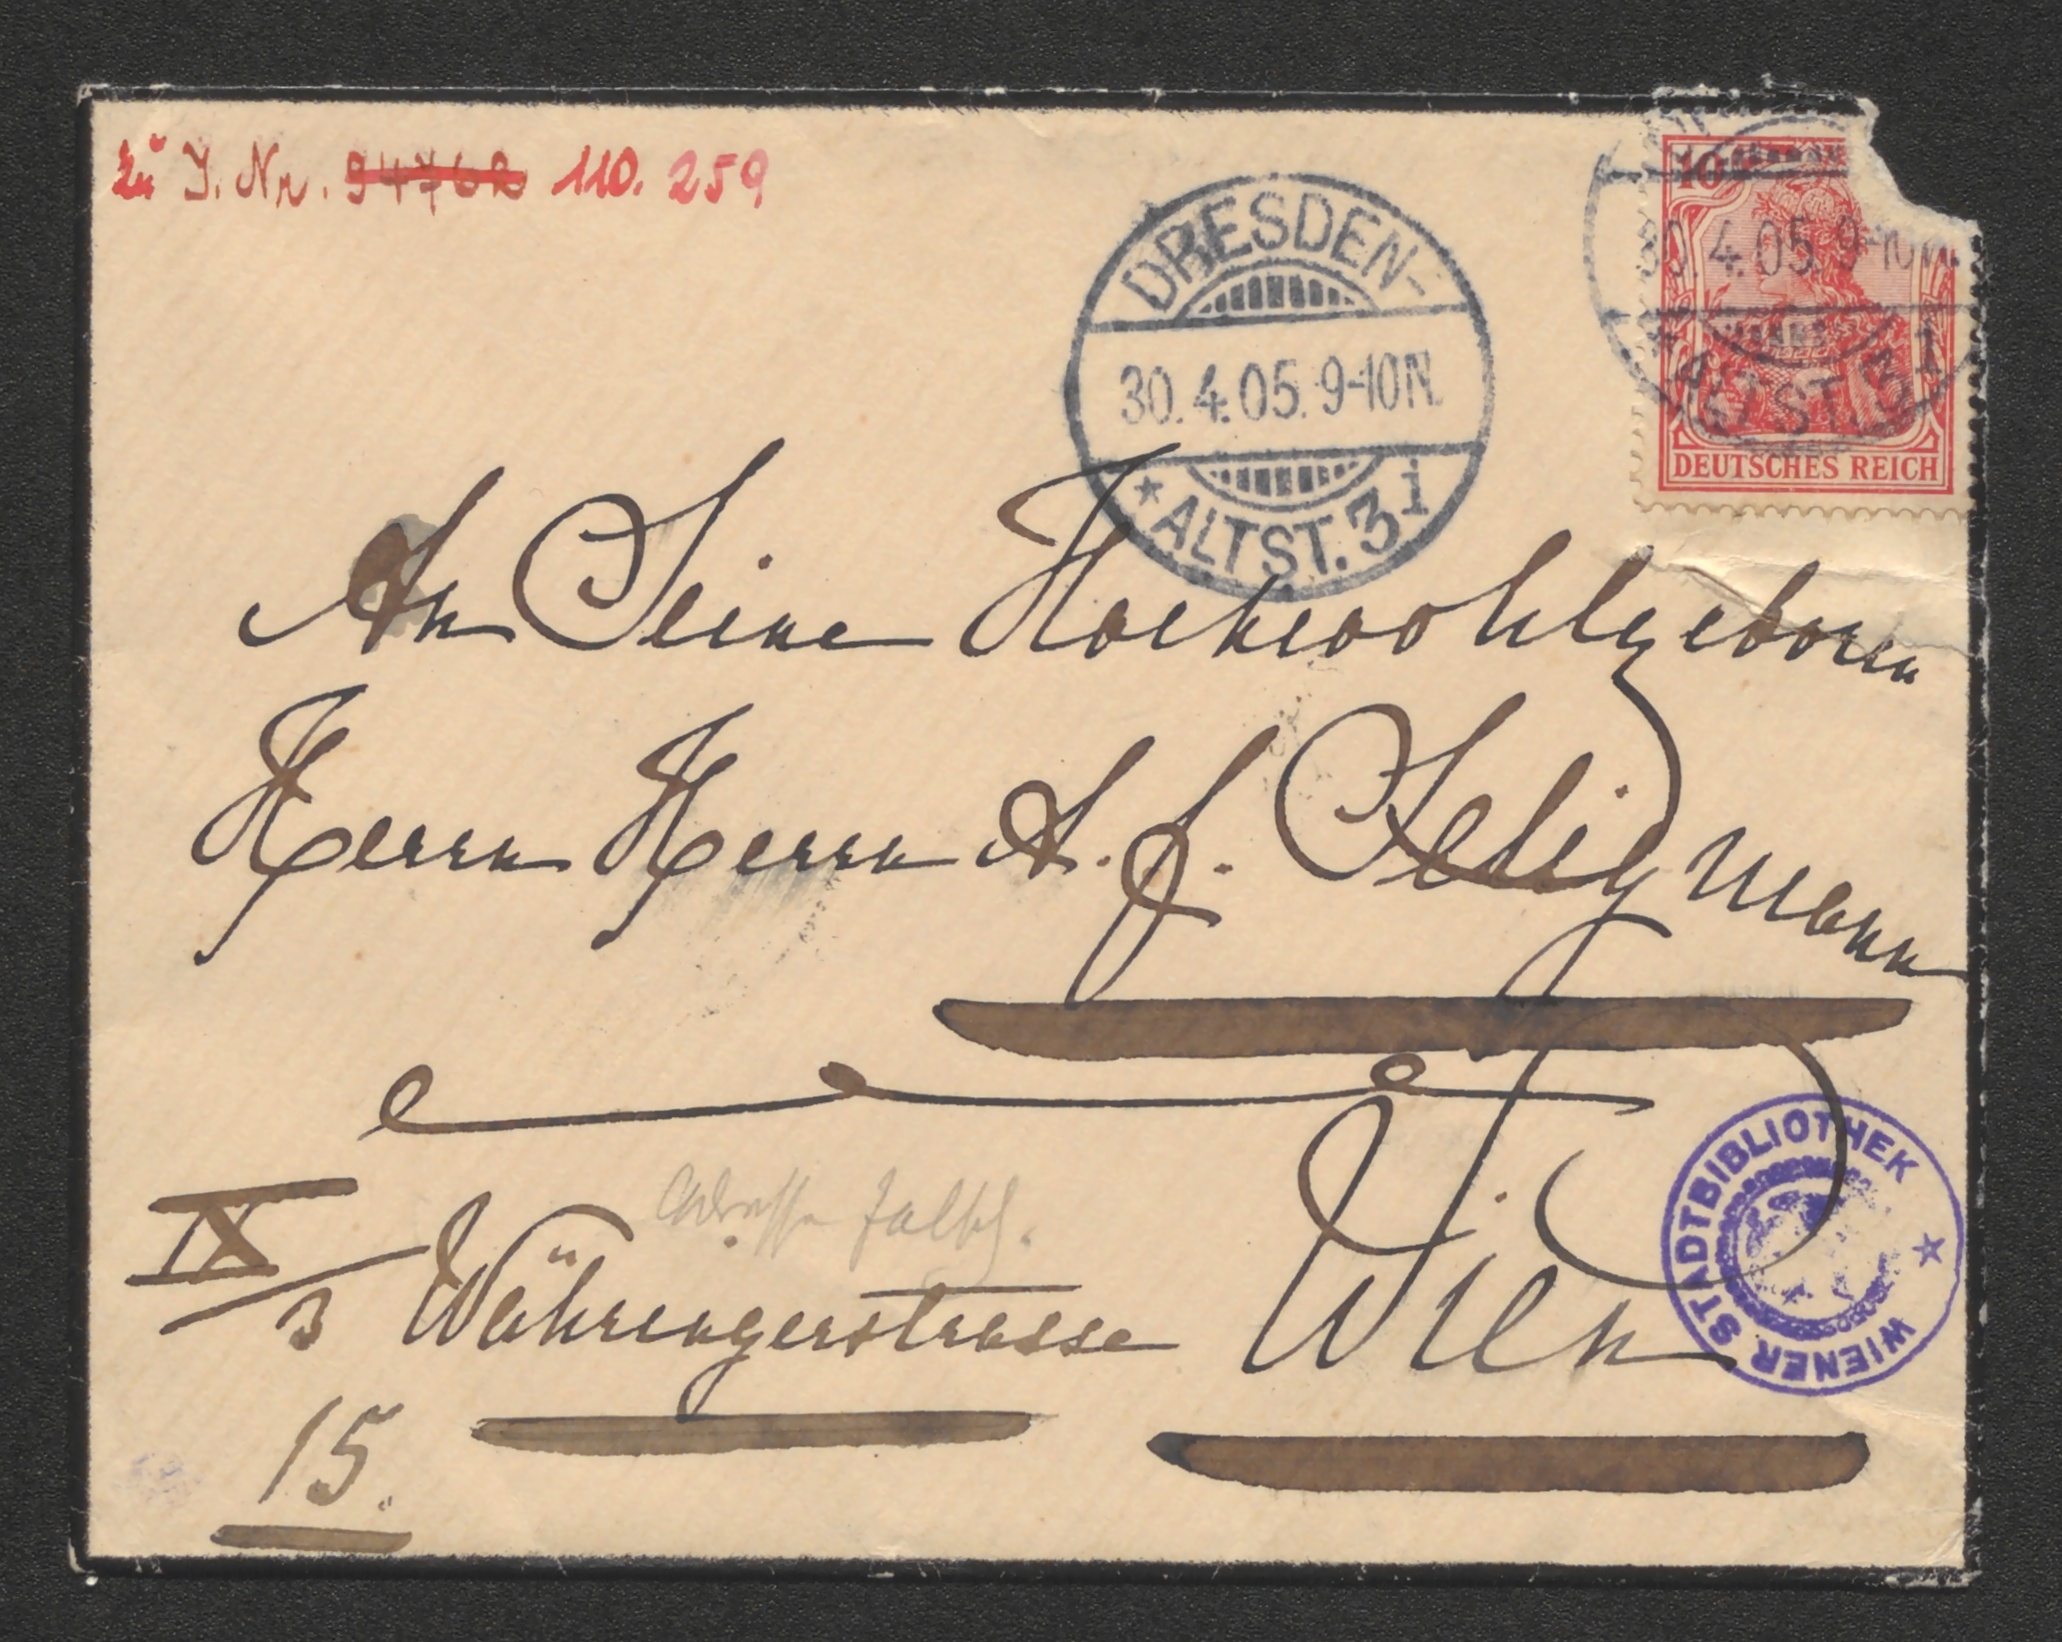 zu J. Nr. 94762 110.259
DRESDEN-
30.4.05.9-10N.
* ALTST. 3 i
10
30.4.05.9-10N.
* ALTST. 3 i
DEUTSCHES REICH
An Seine Hochwohlgeboren
Herrn Herrn A. F. Seligmann
Wien
Adresse falsch.
IX/3 Währingerstrasse
15.
WIENER STADTBIBLIOTHEK *